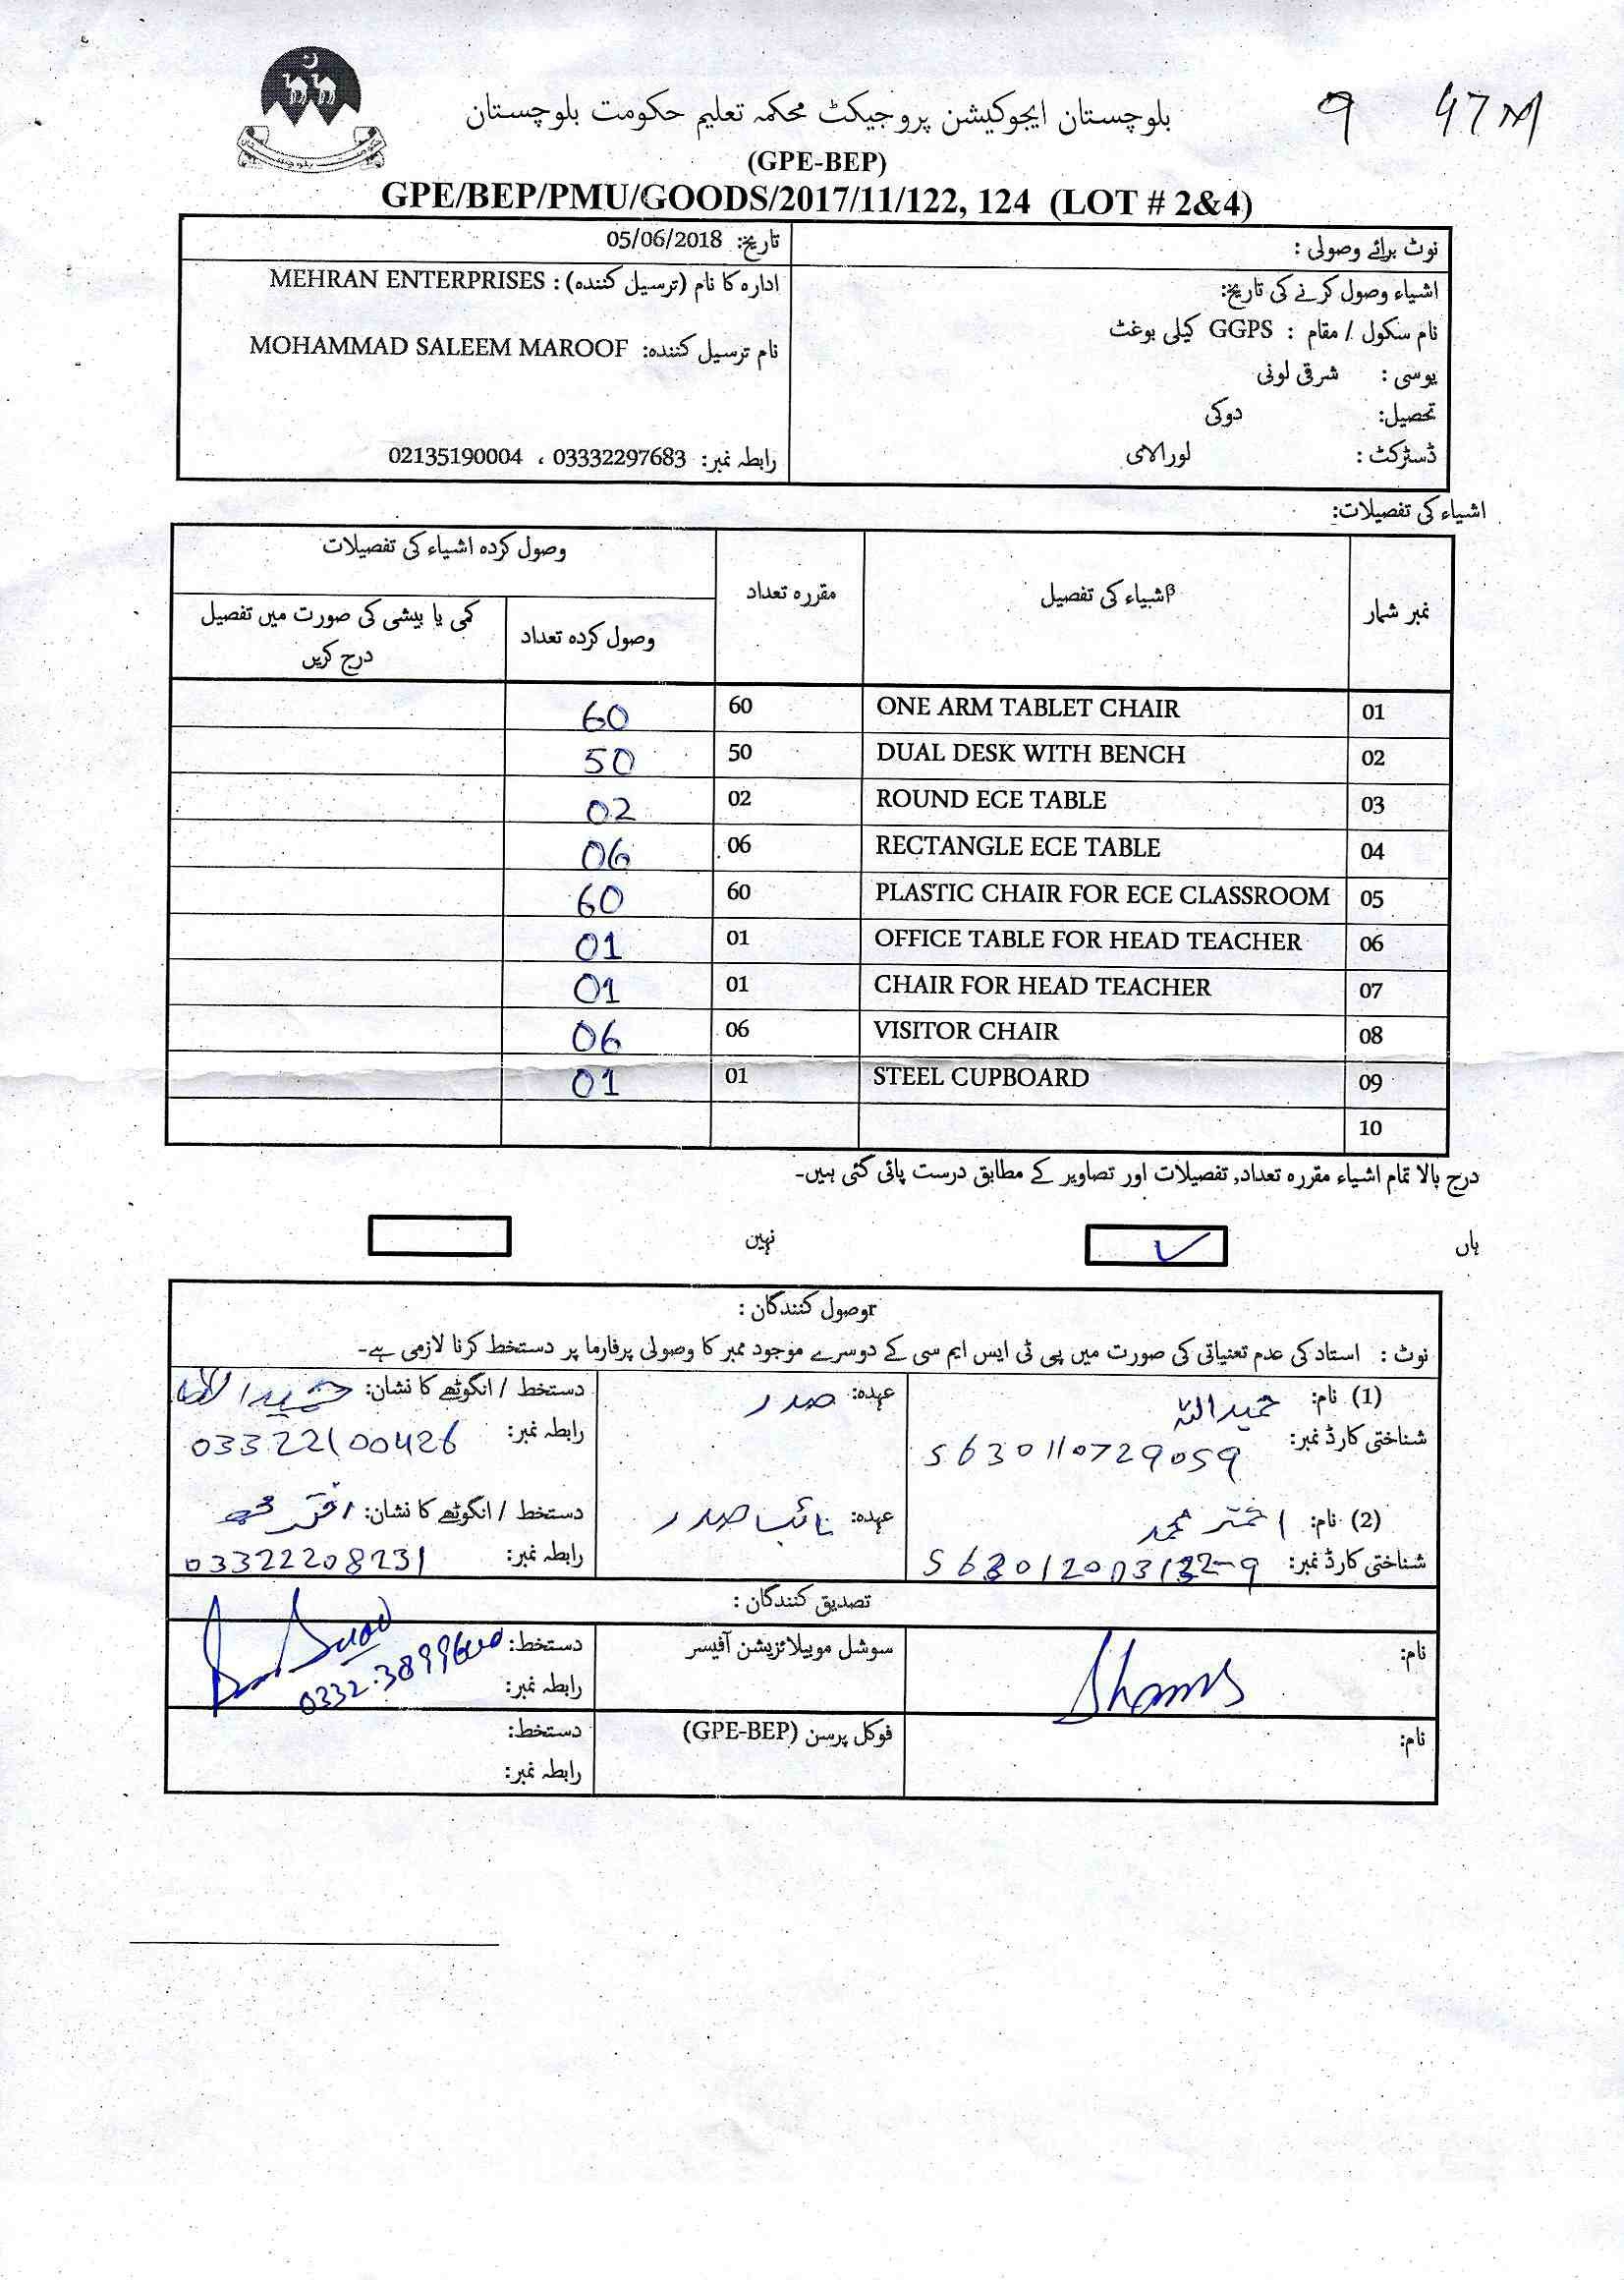 9 47
بلوچستان ایجوکیشن پروجیکٹ محکمہ تعلیم حکومت بلوچستان
(GPE-BEP)
GPE/BEP/PMU/GOODS/2017/11/122, 124 (LOT # 2&4)
نوٹ برائے وصولی :
تاریخ: 05/06/2018
اشیاء وصول کرنے کی تاریخ:
ادارہ کا نام (ترسیل کنندہ) : MEHRAN ENTERPRISES
نام سکول / مقام : GGPS کیلی بوغٹ
نام ترسیل کنندہ: MOHAMMAD SALEEM MAROOF
یوسی : شرقی لونی
تحصیل: دوکی
ڈسٹرکٹ : لورالای
رابطہ نمبر: 03332297683 ، 02135190004
اشیاء کی تفصیلات:
نمبر شمار βاشیاء کی تفصیل مقررہ تعداد وصول کردہ اشیاء کی تفصیلات
وصول کردہ تعداد کمی یا بیشی کی صورت میں تفصیل
درج کریں
01 ONE ARM TABLET CHAIR 60 60
02 DUAL DESK WITH BENCH 50 50
03 ROUND ECE TABLE 02 02
04 RECTANGLE ECE TABLE 06 06
05 PLASTIC CHAIR FOR ECE CLASSROOM 60 60
06 OFFICE TABLE FOR HEAD TEACHER 01 01
07 CHAIR FOR HEAD TEACHER 01 01
08 VISITOR CHAIR 06 06
09 STEEL CUPBOARD 01 01
10
درج بالا تمام اشیاء مقررہ تعداد, تفصیلات اور تصاویر کے مطابق درست پائی گئی ہیں۔
ہاں ✓ نہین
rوصول کنندگان :
نوٹ : استاد کی عدم تعنیاتی کی صورت میں پی ٹی ایس ایم سی کے دوسرے موجود ممبر کا وصولی پرفارما پر دستخط کرنا لازمی ہے۔
(1) نام: حمیداللہ عہدہ: صدر دستخط / انگوٹھے کا نشان: حمیداللہ
شناختی کارڈ نمبر: 5630110729059 رابطہ نمبر: 03322100426
(2) نام: اختر محمد عہدہ: نائب صدر دستخط / انگوٹھے کا نشان: اختر محمد
شناختی کارڈ نمبر: رابطہ نمبر: 03322208231
تصدیق کنندگان :
نام: Shams سوشل موبیلائزیشن آفیسر دستخط:
رابطہ نمبر:
نام: فوکل پرسن (GPE-BEP) دستخط:
رابطہ نمبر: